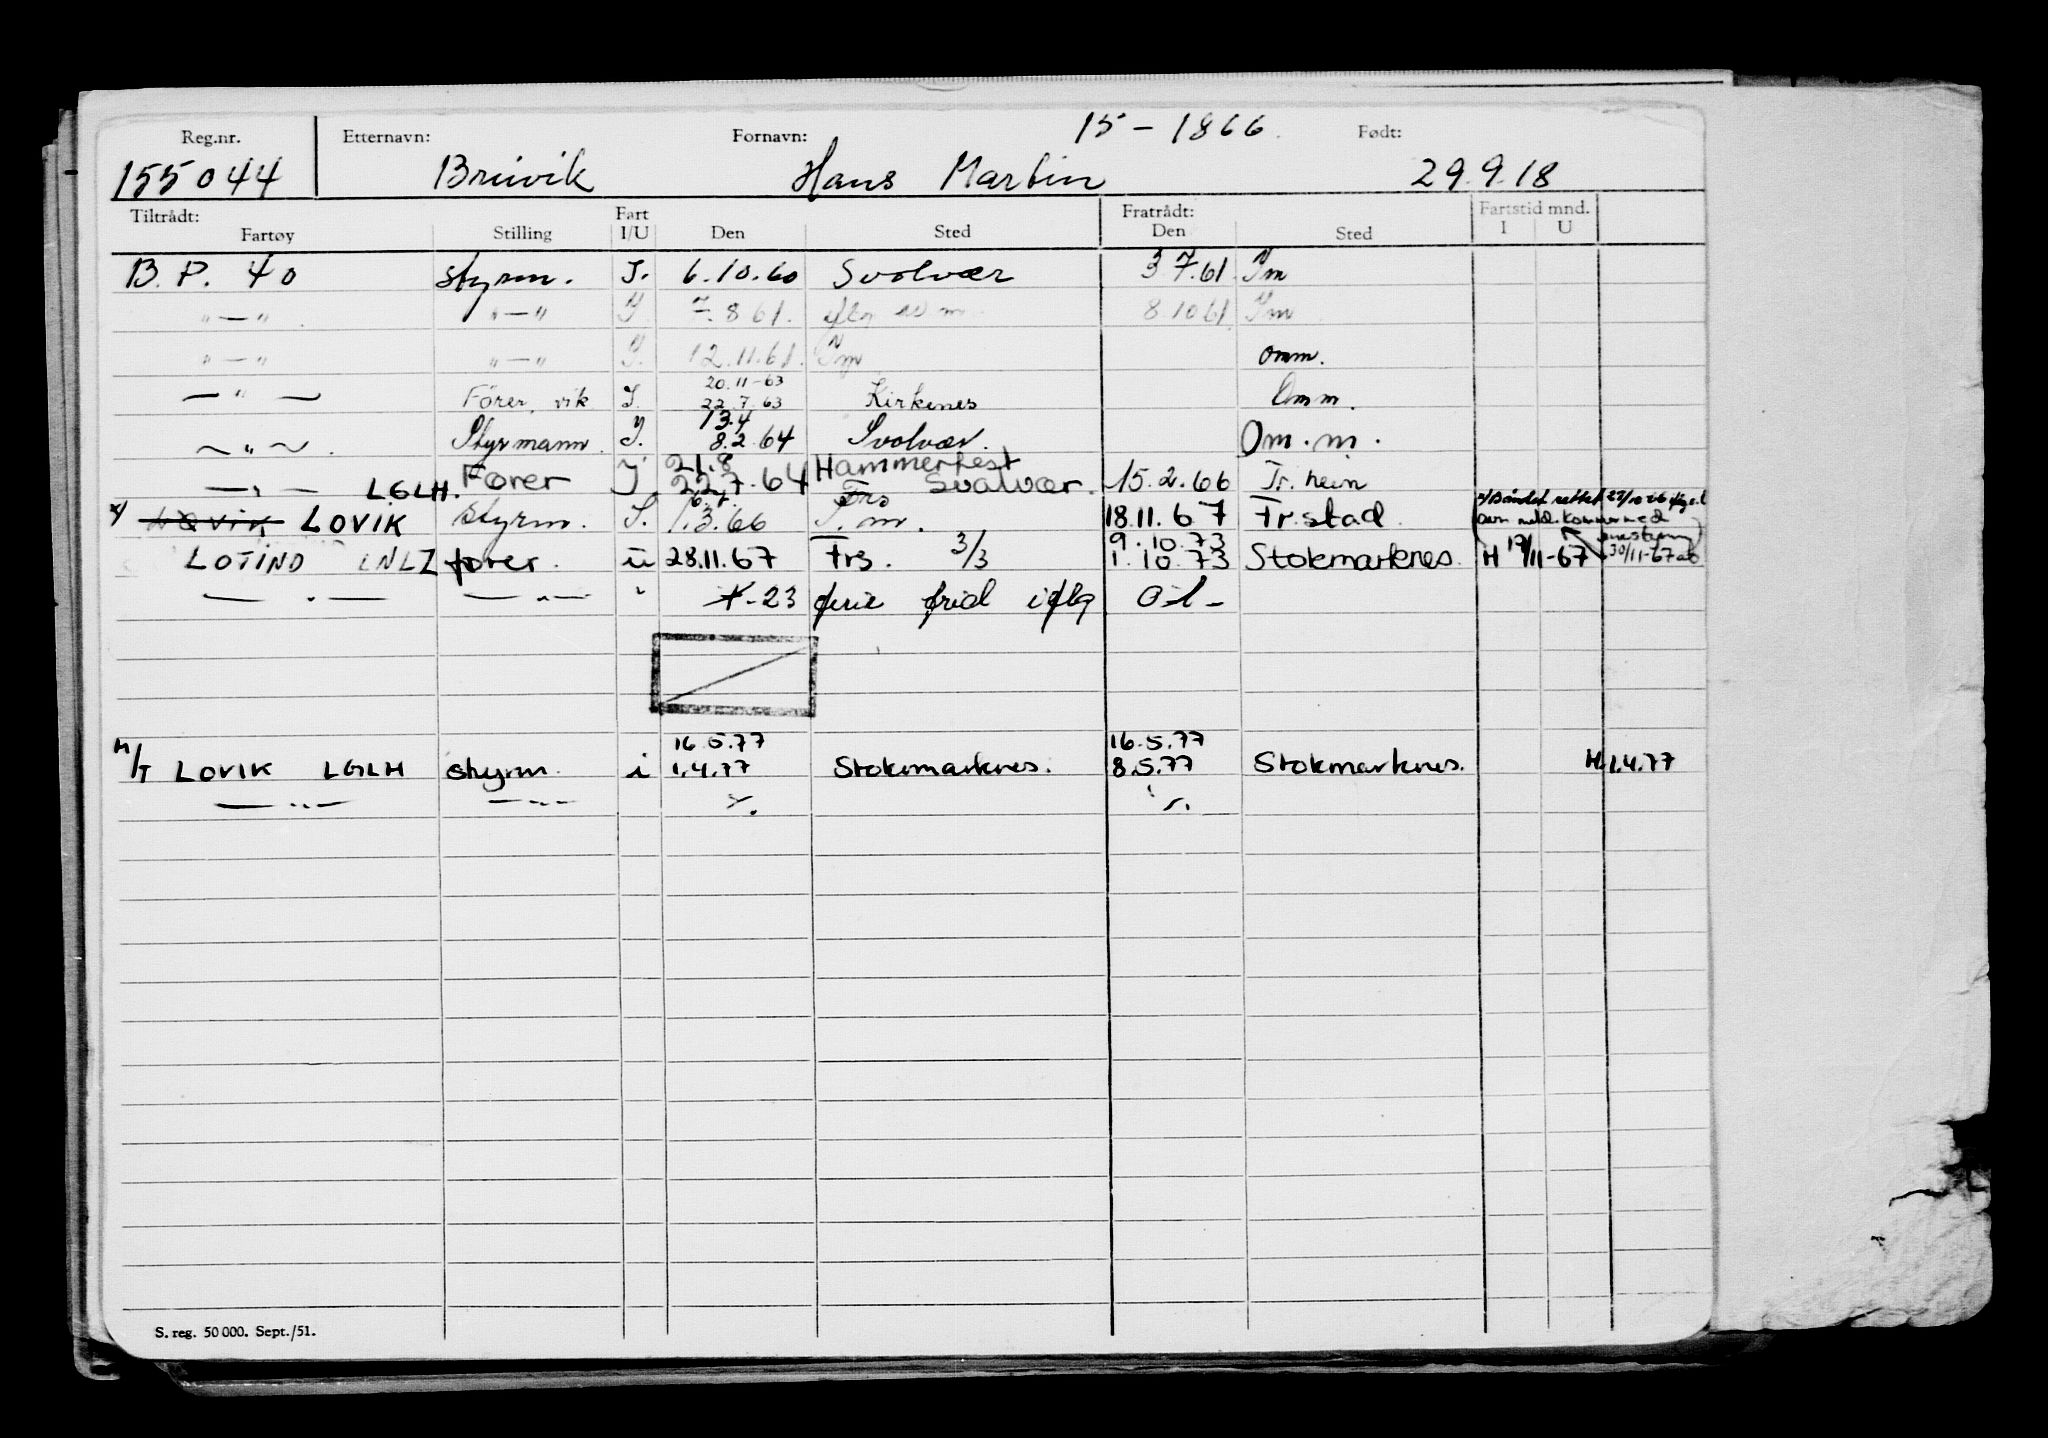 15 - 1866.
Reg.nr. Etternavn: Fornavn: Født:
155044 Breivik Hans Martin 29.9.18
Tiltrådt: Fratrådt: Fartstid mnd.
Fartøy Stilling Fart I/U Den Sted Den Sted I U
B. P. 40 styrm. I. 6.10.60 Svolvær 3 7.61 Im
" — " " — " I. 7.8 61. 8 10 61. Im
" — " " — " I. 12.11.61. Im omm.
20.11-63
— " — Fører, vik I. 22.7.63 Kirkenes Omm.
13.4
— " — . Styrmann I. 8.2 64 Svolvær. Om.m.
21.8 Hammerfest
— " — LGLH. Fører I 22.7.64 Svolvær. 15.2.66 Tr.heim
Frs
x/ LOVIK LOVIK Styrm. I. 1.3.66 I.m. 18.11.67 Fr.stad
9.10.73
LOTIND LNLZ fører. u 28.11.67 Frs. 3/3 1.10.73 Stokmarknes. H 19/11-67 30/11-67
— " — — " — " -23 ferie frid iflg
16.5.77 16.5.77
M/T LOVIK LGLH styrm. i 1.4.77 Stokmarknes. 8.5.77 Stokmarknes. H.1.4.77
— " — — " — %. %.
S. reg. 50 000. Sept./51.